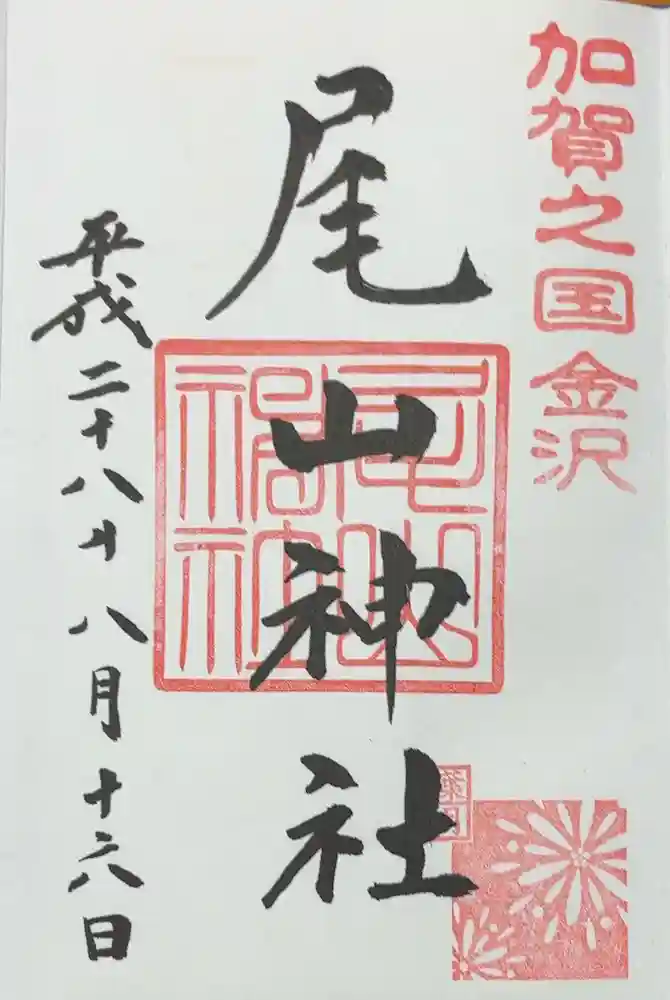 加賀之国金沢
尾山神社
葉月
平成二十八年八月十六日